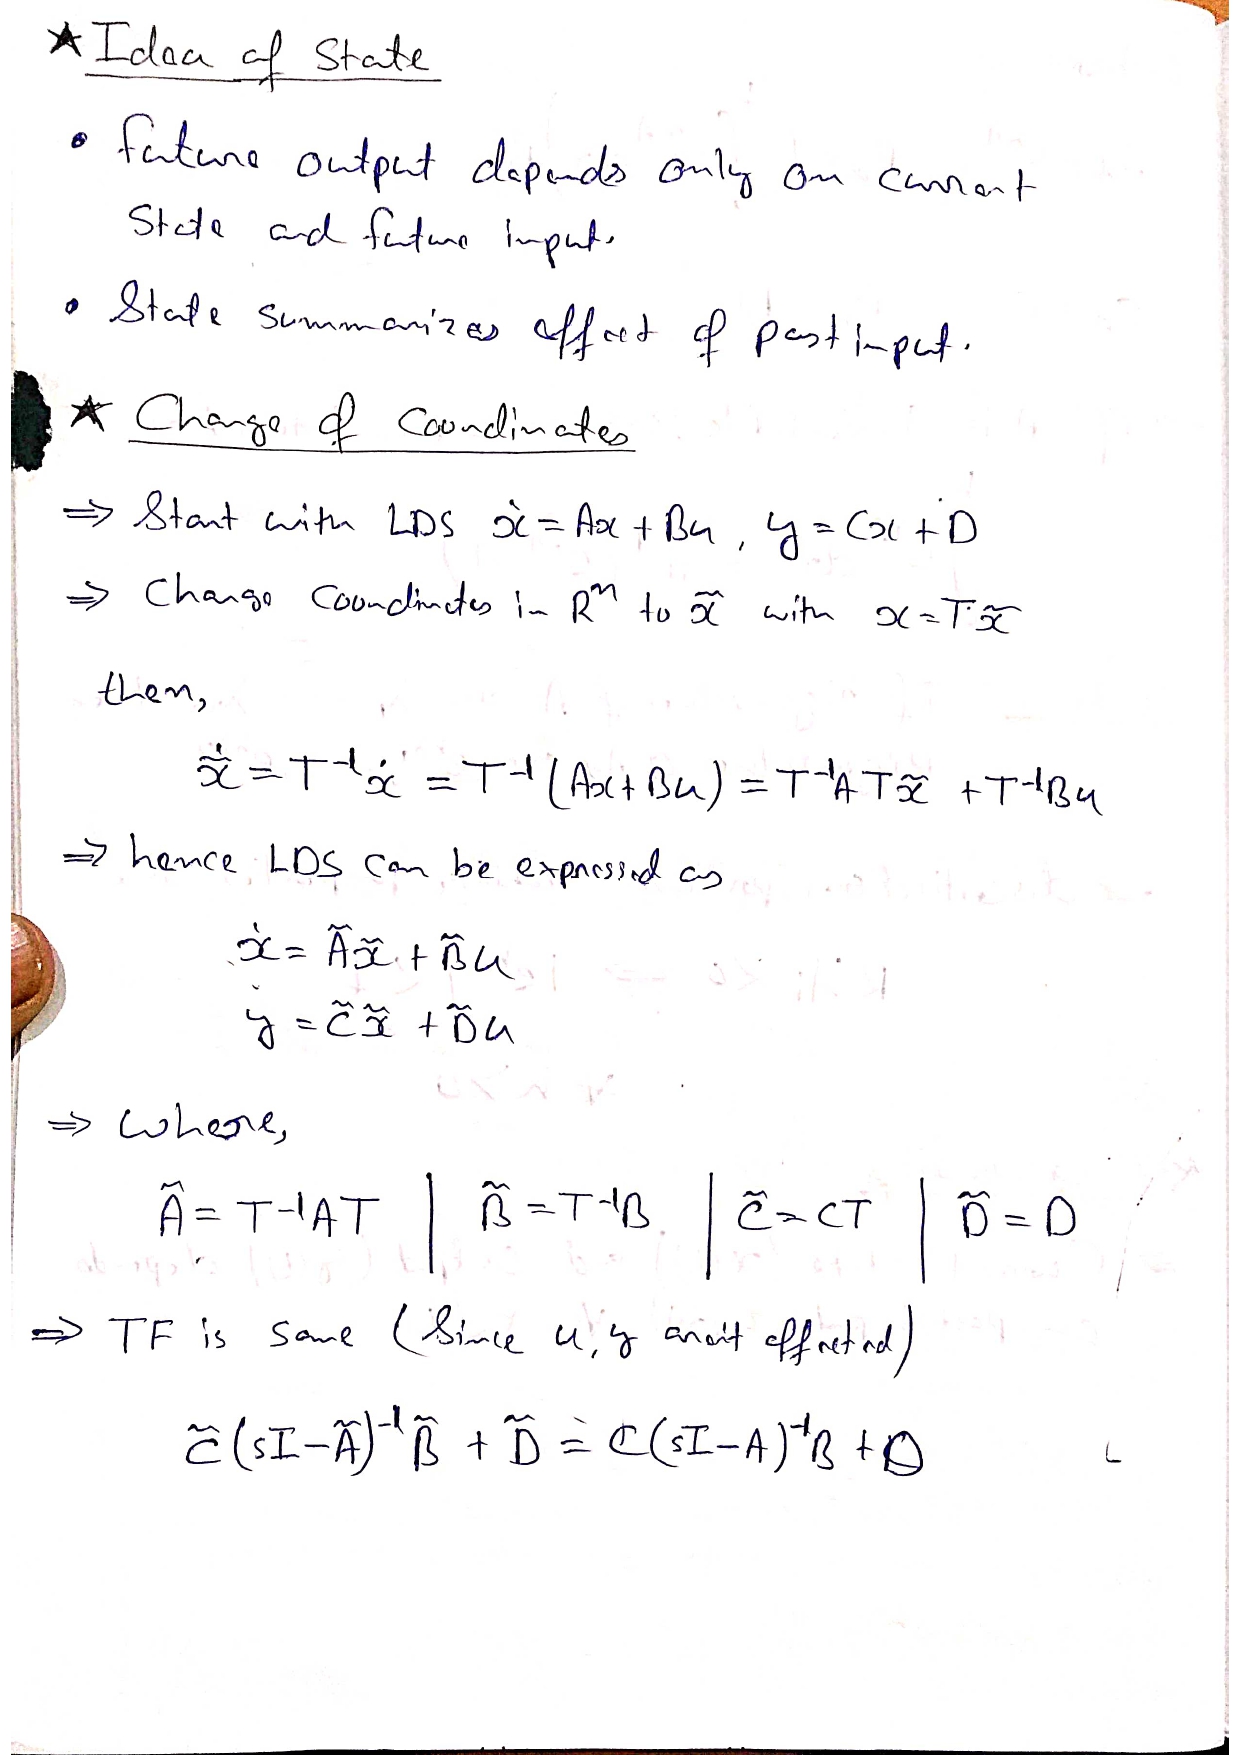 ★ Idea of State
• future output depends only on current
State and future input.
• State summarizes effect of past input.
★ Change of Coordinates
⇒ Start with LDS ẋ = Ax + Bu , y = Cx + D
⇒ Change Coordinates in Rⁿ to x̃ with x = Tx̃
then,
x̃̇ = T⁻¹ẋ = T⁻¹(Ax + Bu) = T⁻¹ATx̃ + T⁻¹Bu
⇒ hence LDS can be expressed as
ẋ = Ãx̃ + B̃u
y = C̃x̃ + D̃u
⇒ where,
Ã = T⁻¹AT | B̃ = T⁻¹B | C̃ = CT | D̃ = D
⇒ TF is same (Since u, y aren't effected)
C̃(sI-Ã)⁻¹B̃ + D̃ = C(sI-A)⁻¹B + D